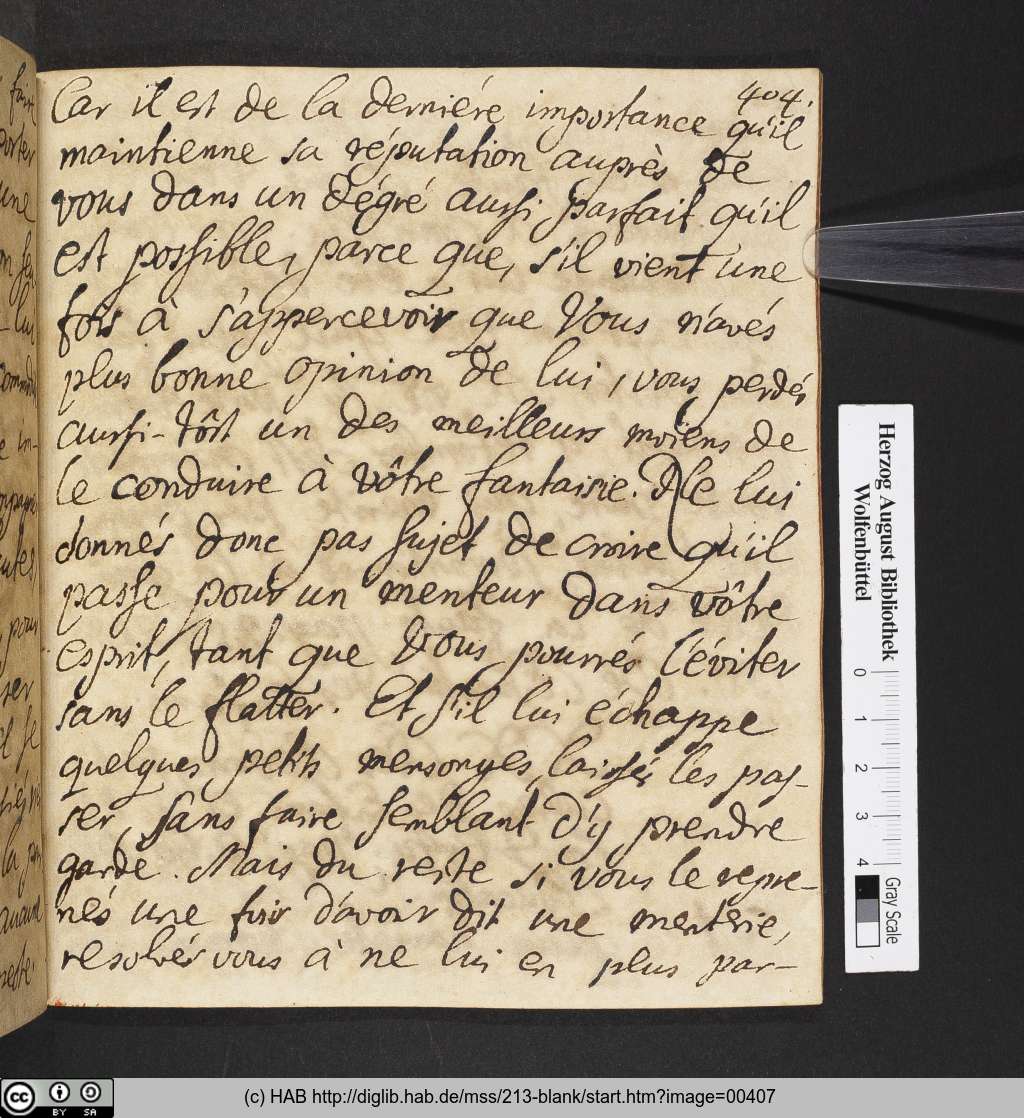 404.
Car il est de la derniére importance qu'il
maintienne sa réputation auprès de
vous dans un dégré aussi parfait qu'il
est possible, parce que, s'il vient une
fois à s'appercevoir que Vous n'avés
plus bonne opinion de lui, vous perdés
aussi-tôst un des meilleurs moïens de
le conduire à vôtre fantaisie. Ne lui
donnés donc pas sujet de croire qu'il
passe pour un menteur dans vôtre
esprit, tant que Vous pourrés l'éviter
sans le flatter. Et s'il lui échappe
quelques petits mensonges, laissés les pas-
ser, sans faire semblant d'y prendre
garde. Mais du reste si vous le repre-
nés une fois d'avoir dit une menterie,
resolvés vous à ne lui en plus par-
faire
porter
une
lui
pour
ser
la
quand
reste
Herzog August Bibliothek
Wolfenbüttel
0 1 2 3 4
Gray Scale
cc BY SA
(c) HAB http://diglib.hab.de/mss/213-blank/start.htm?image=00407